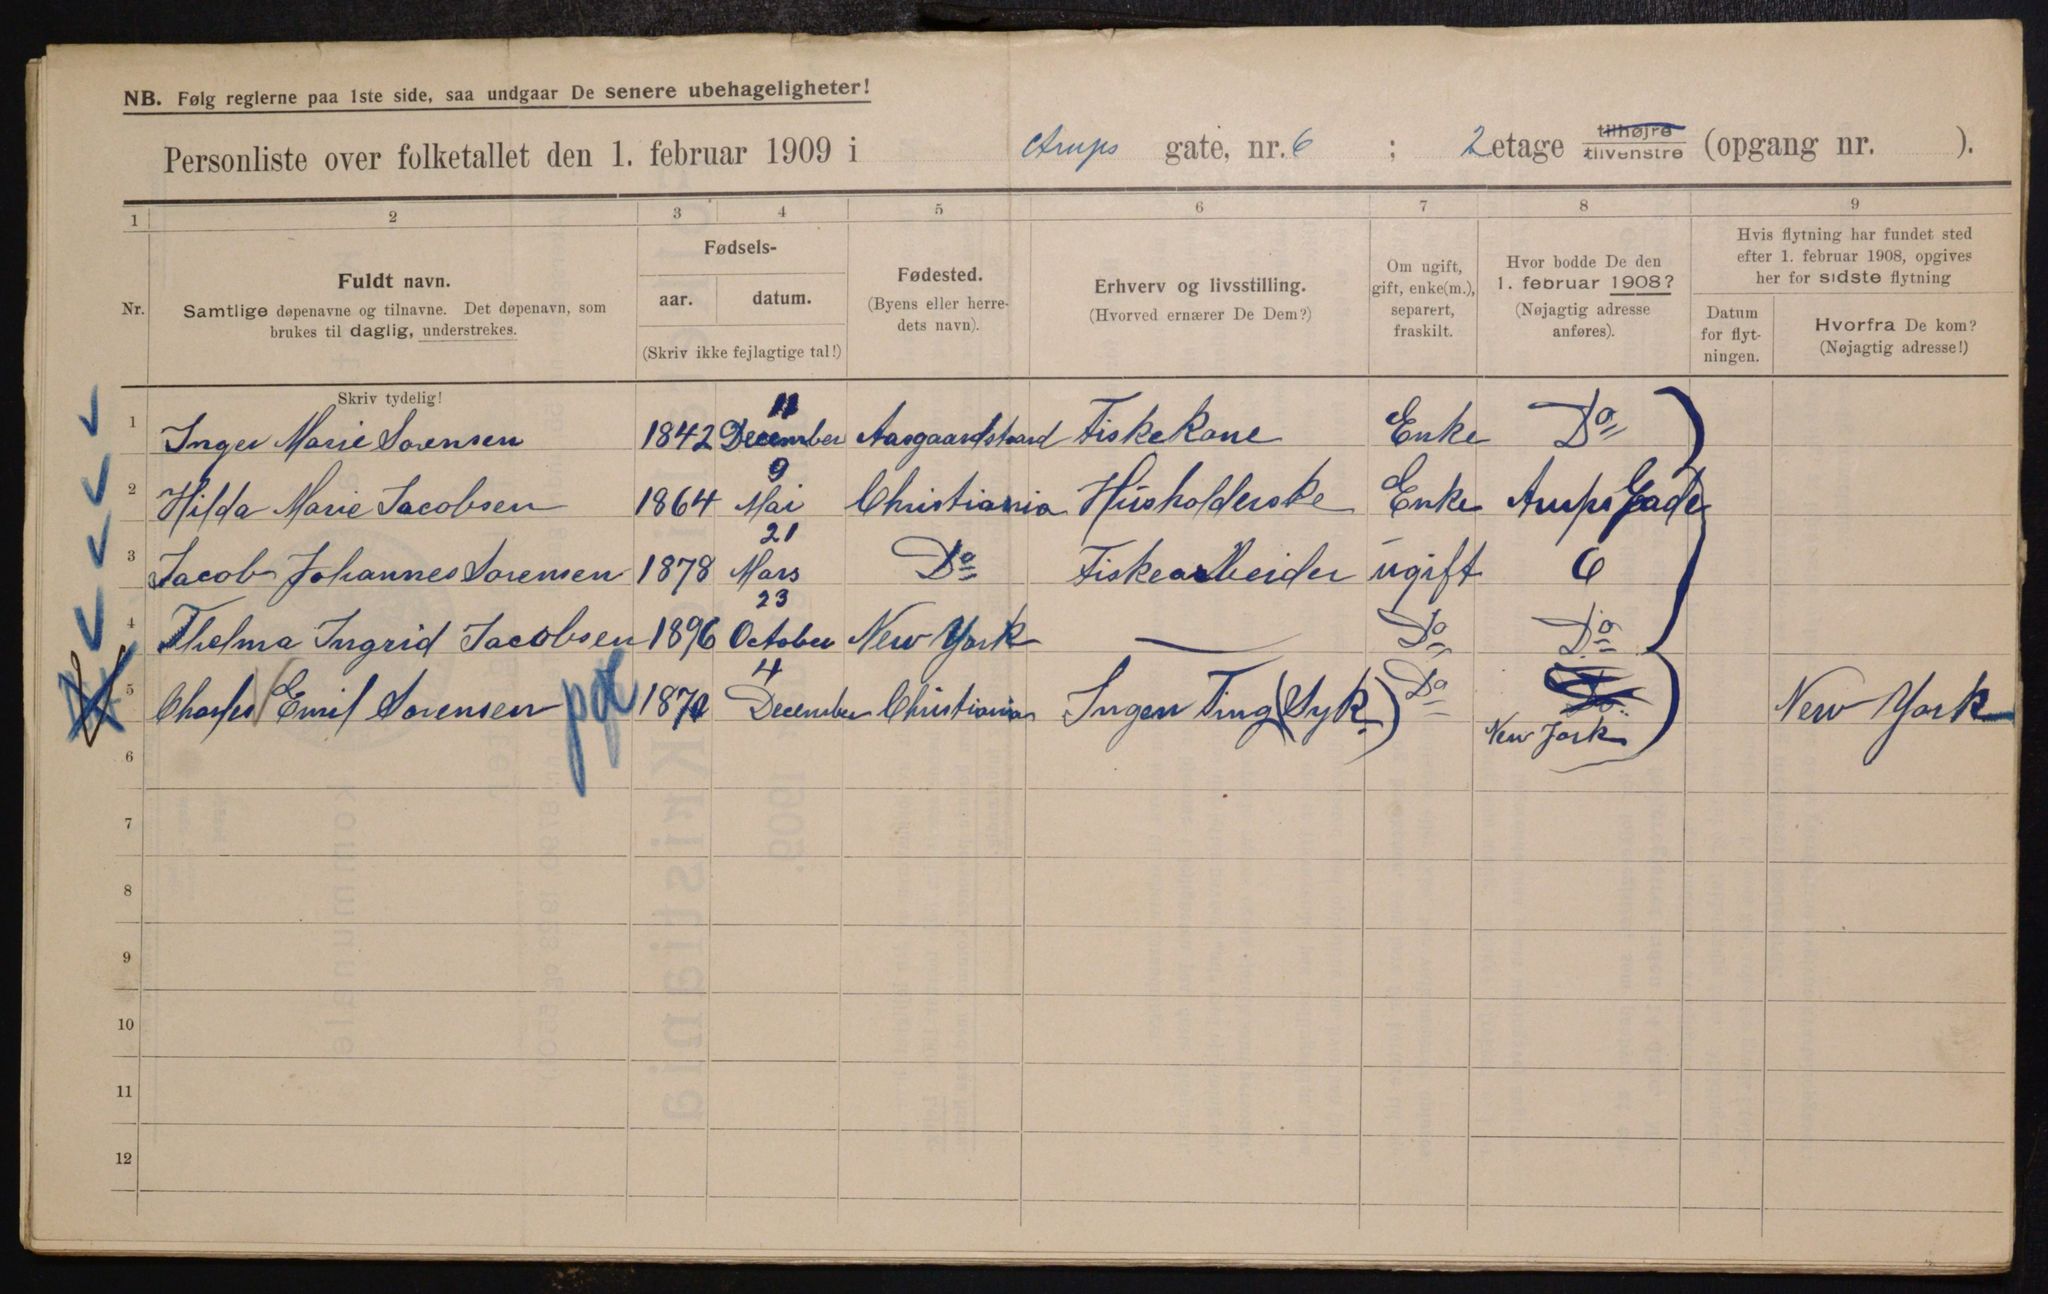 NB. Følg reglerne paa 1ste side, saa undgaar De senere ubehageligheter!
Personliste over folketallet den 1. februar 1909 i Arups gate, nr. 6 ; 2 etage tilhøjre tilvenstre (opgang nr. ).
1 2 3 4 5 6 7 8 9
Nr.
Fuldt navn.
Samtlige døpenavne og tilnavne. Det døpenavn, som
brukes til daglig, understrekes.
Fødsels-
aar. datum.
(Skriv ikke fejlagtige tal!)
Fødested.
(Byens eller herre-
dets navn).
Erhverv og livsstilling.
(Hvorved ernærer De Dem?)
Om ugift,
gift, enke(m.),
separert,
fraskilt.
Hvor bodde De den
1. februar 1908?
(Nøjagtig adresse
anføres).
Hvis flytning har fundet sted
efter 1. februar 1908, opgives
her for sidste flytning
Datum
for flyt-
ningen.
Hvorfra De kom?
(Nøjagtig adresse!)
Skriv tydelig!
1 Inger Marie Sorensen 1842 11 December Aasgaardstrand Fiskekone Enke Do
2 Hilda Marie Jacobsen 1864 9 Mai Christiania Husholderske Enke Arups Gade
3 Jacob Johannes Sorensen 1878 21 Mars Do Fiskearbeider ugift 6
4 Thelma Ingrid Jacobsen 1896 23 October New York — Do Do
5 Charles Emil Sorensen 4 December Christiania Ingen Ting (Syk) Do New York New York
6
7
8
9
10
11
12